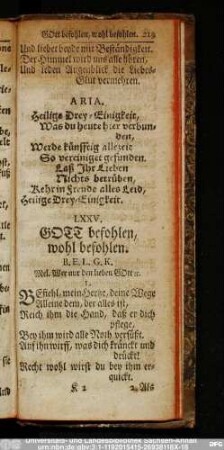 GOtt befohlen, wohl befohlen. 219
Und liebet beyde mit Beständigkeit.
Der Himmel wird uns alle hören,
Und jeden Augenblick die Liebes-
Glut vermehren.
ARIA.
Heiligs Drey-Einigkeit,
Was du heute hier verbun-
den,
Werde künfftig allezeit
So vereiniget gefunden.
Laß Ihr Lieben
Nichts betrüben,
Kehr in Freude alles Leid,
Heilige Drey-Einigkeit.
LXXV.
GOTT befohlen,
wohl befohlen.
B. E. L. G. K.
Mel. Wer nur den lieben GOtt ec.
1.
BEfiehl, mein Hertze, deine Wege
Alleine dem, der alles ist,
Reich ihm die Hand, daß er dich
pflege,
Bey ihm wird alle Noth versüßt.
Auf ihn wirff, was dich kränckt und
drückt!
Recht wohl wirst du bey ihm er-
quickt.
K 2
2. Als
Universitäts- und Landesbibliothek Sachsen-Anhalt
urn:nbn:de:gbv:3:1-1192015415-26938116X-18
DFG